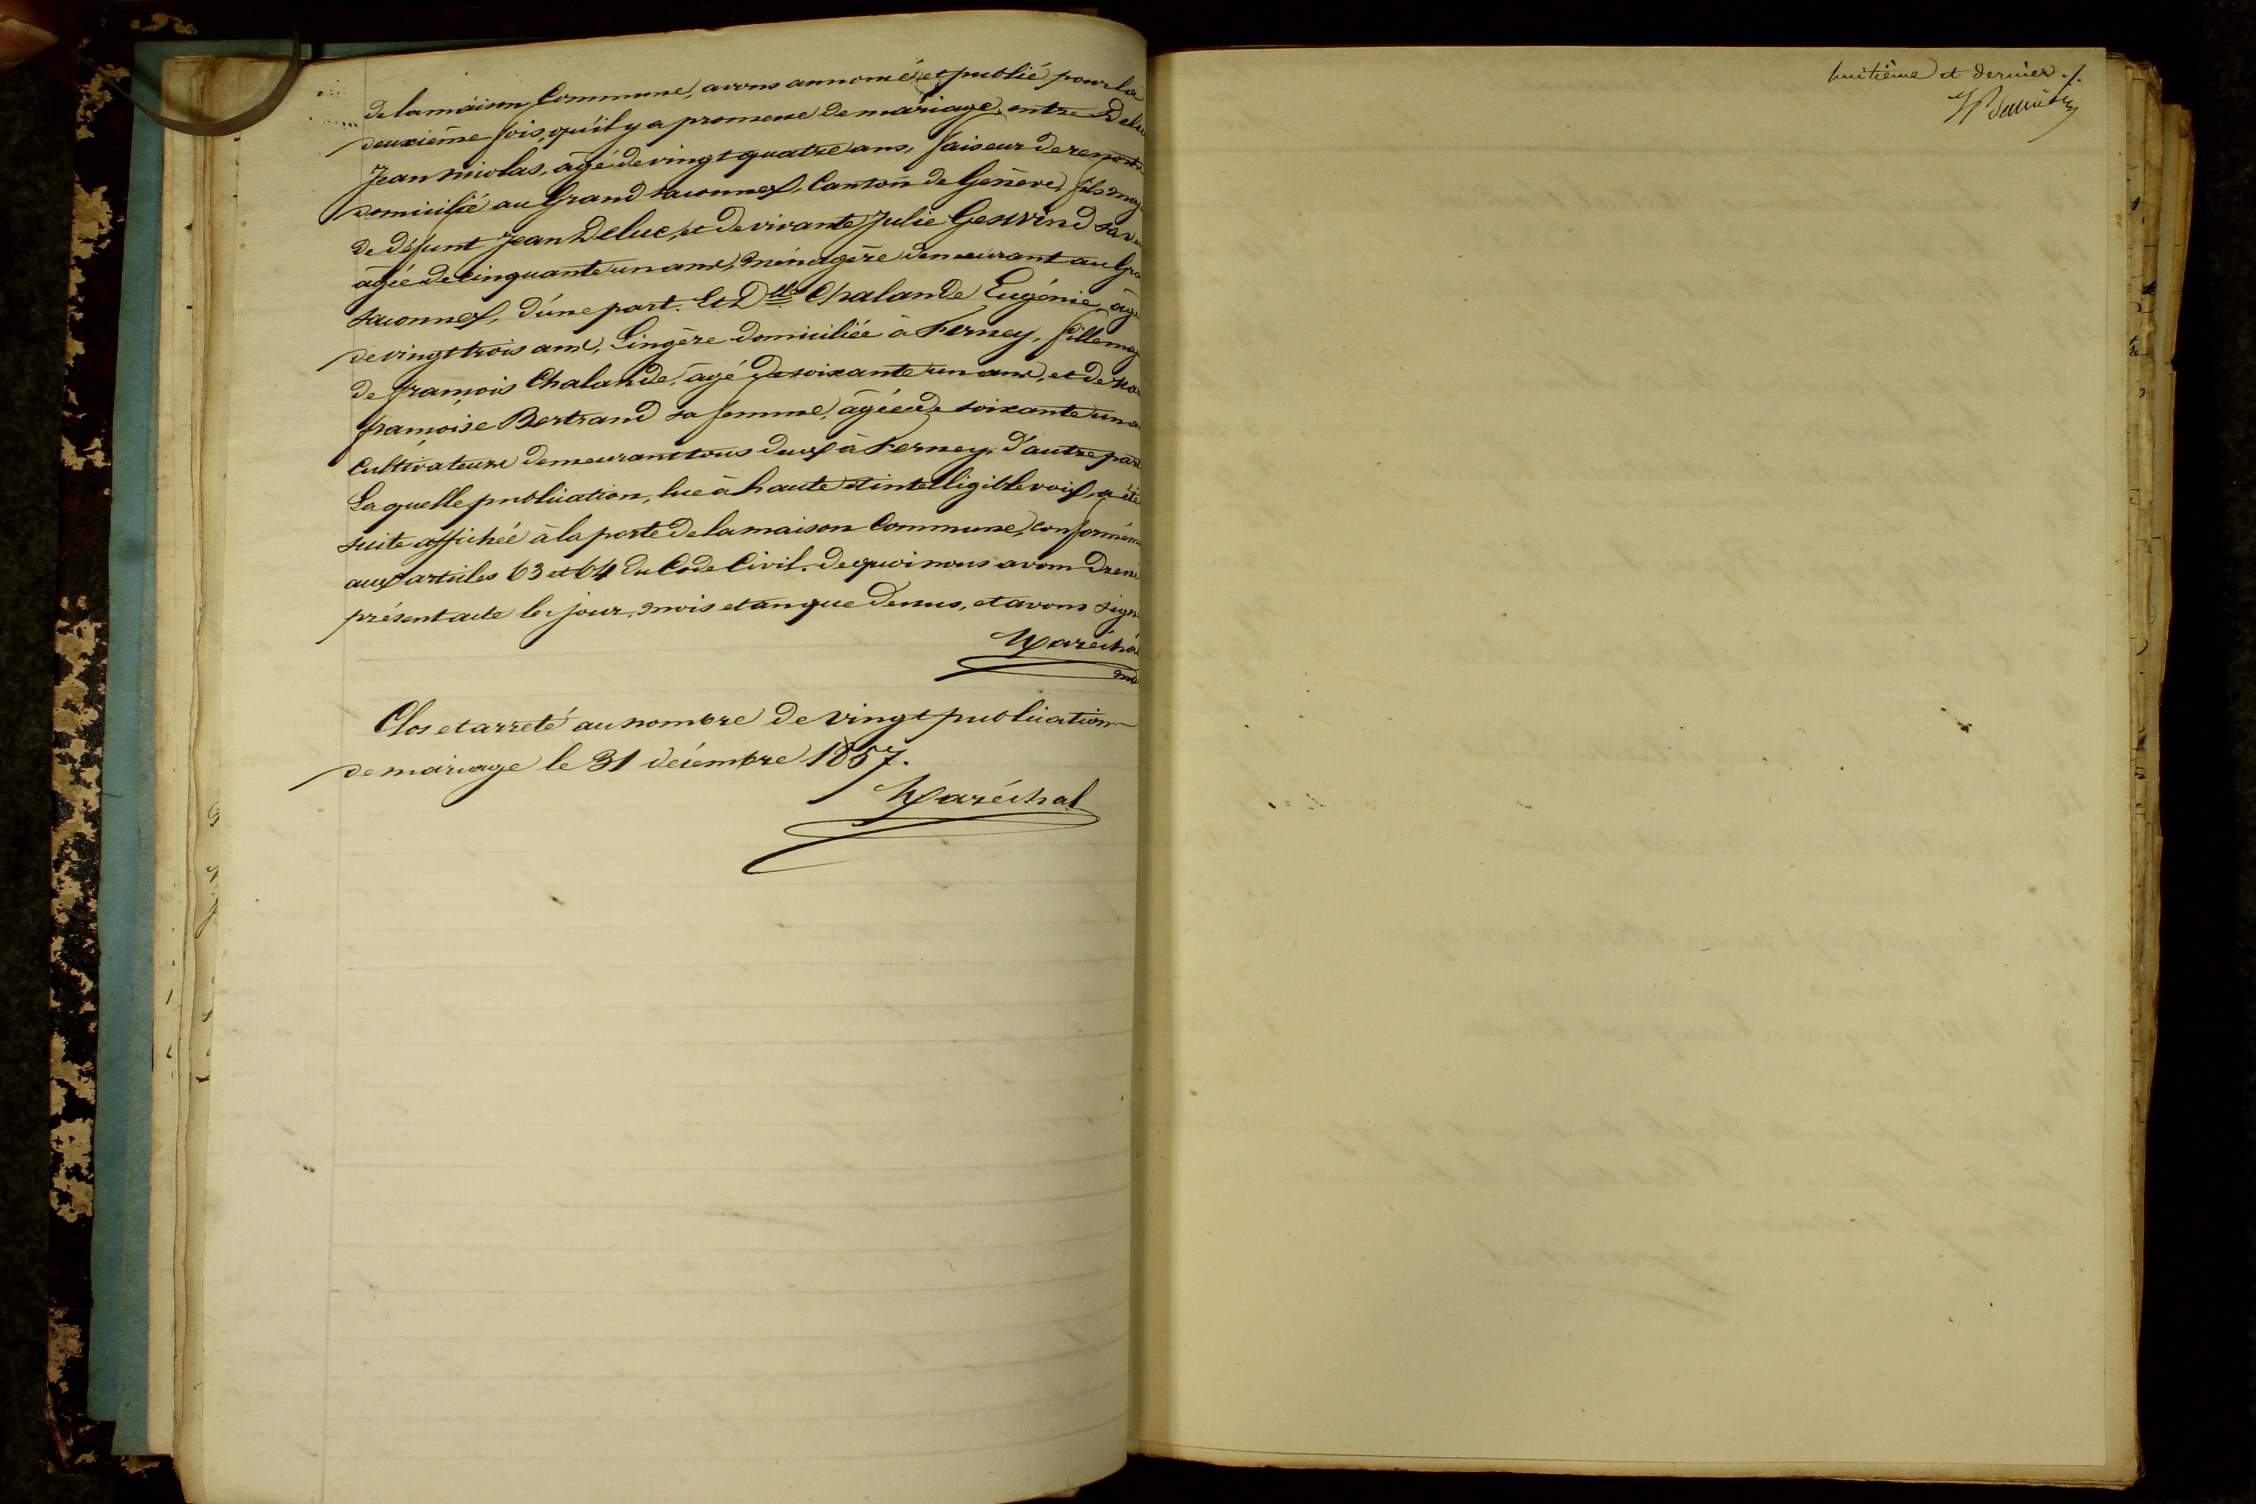 de la maison Commune, avons annoncé et publié pour la
deuxième fois, qu'il y a promesse de mariage, entre Deluc
Jean Nicolas, âgé de vingt quatre ans, faiseur de ressorts
domicilié au Grand Saconnex, Canton de Genève, fils maj
de défunt Jean Deluc, et de vivante Julie Gesvrind sa veu
âgée de cinquante un ans, ménagère demeurant au Gra
Saconnex, d'une part. Et Dlle Chalande Eugénie, âgé
de vingt trois ans, Lingère domiciliée à Ferney, fille maj
de françois Chalande, âgé de soixante un ans, et de
françoise Bertrand sa femme, âgée de soixante un a
Cultivateurs demeurant tous deux à Ferney, d'autre part
Laquelle publication, lue à haute et intelligible voix, a été
suite affichée à la porte de la maison Commune, conformém
aux articles 63 et 64 du Code Civil. de quoi nous avons Dressé
présent acte les jour, mois et an que dessus, et avons signé
Maréchal
Clos et arreté au nombre de vingt publication
de mariage le 31 décembre 1857.
Maréchal
huitième et dernier ./.